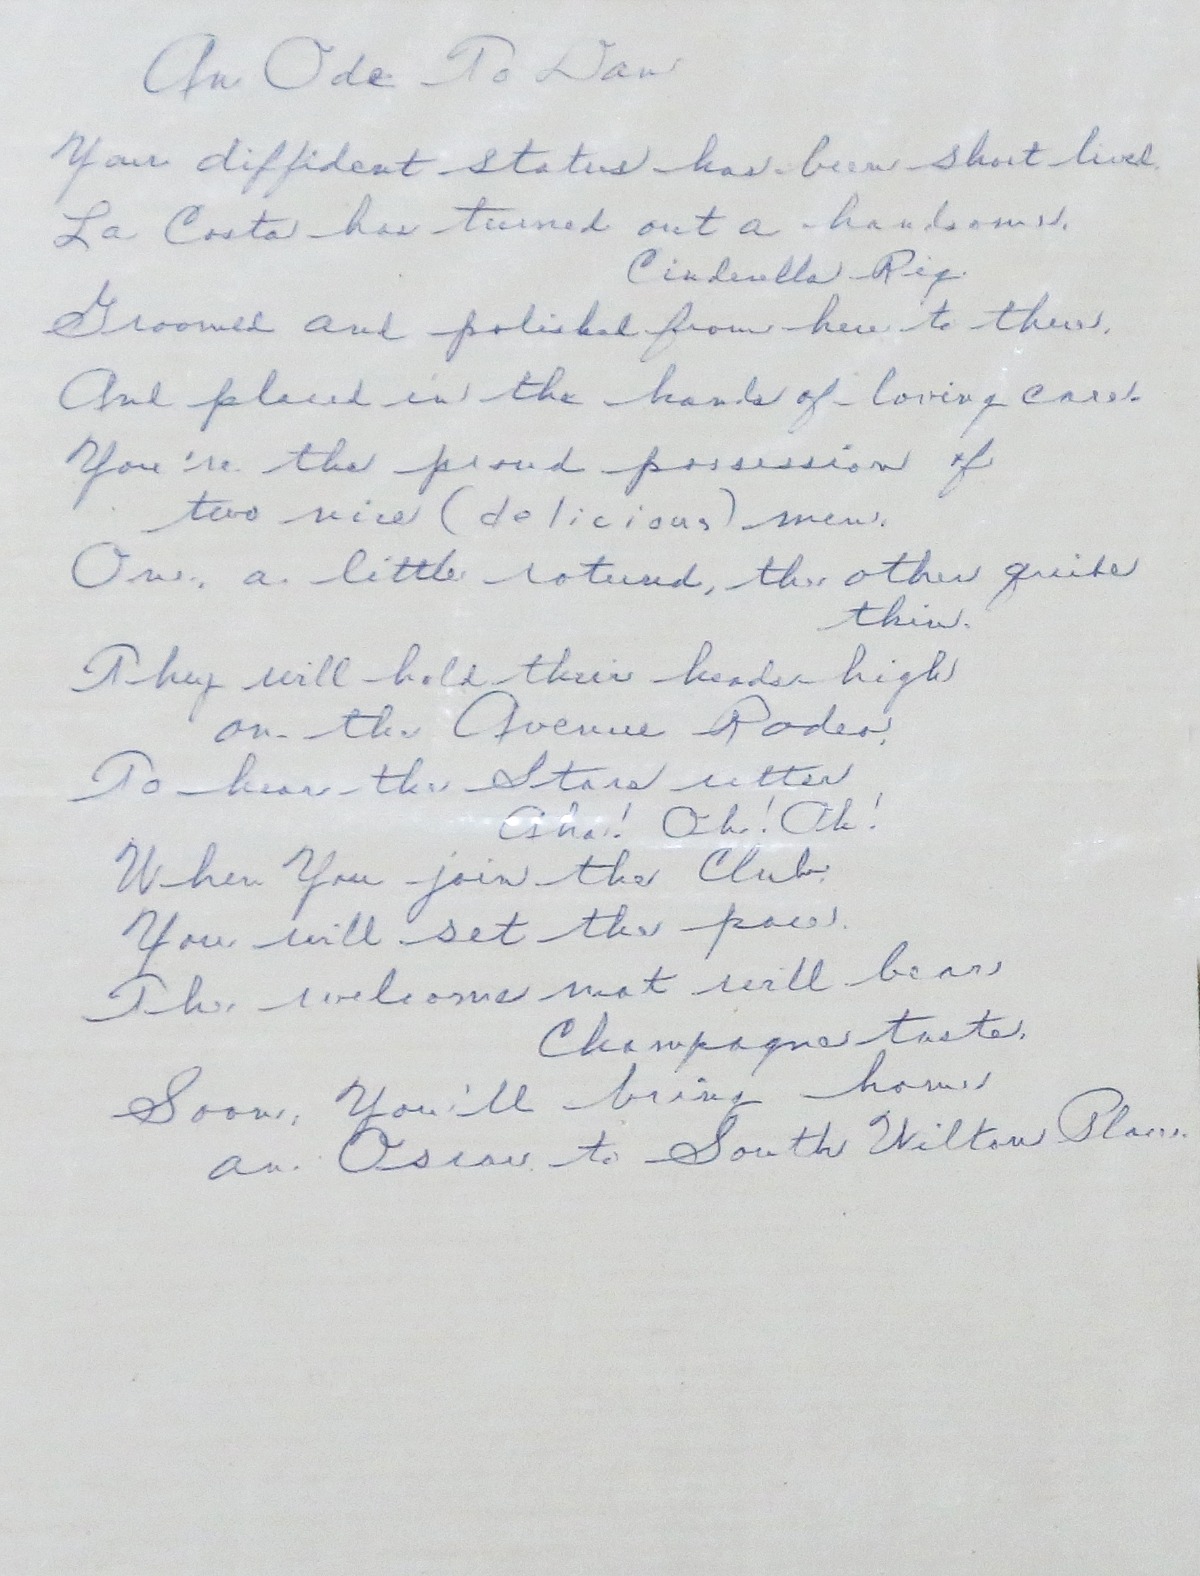 An Ode To Dan
Your diffident status has been short lived.
La Costa has turned out a handsome
Cinderella Rig.
Groomed and polished from here to there,
And placed in the hands of loving care.
You're the proud possession of
two nice (delicious) men.
One, a little rotund, the other quite
thin.
They will hold their heads high
on the Avenue Rodeo,
To hear the Stars utter
Aha! Oh! Ah!
When You join the Club
You will set the pace.
The welcome mat will bear
Champagne taste.
Soon, You'll bring home
an Oscar to South Wilton Place.